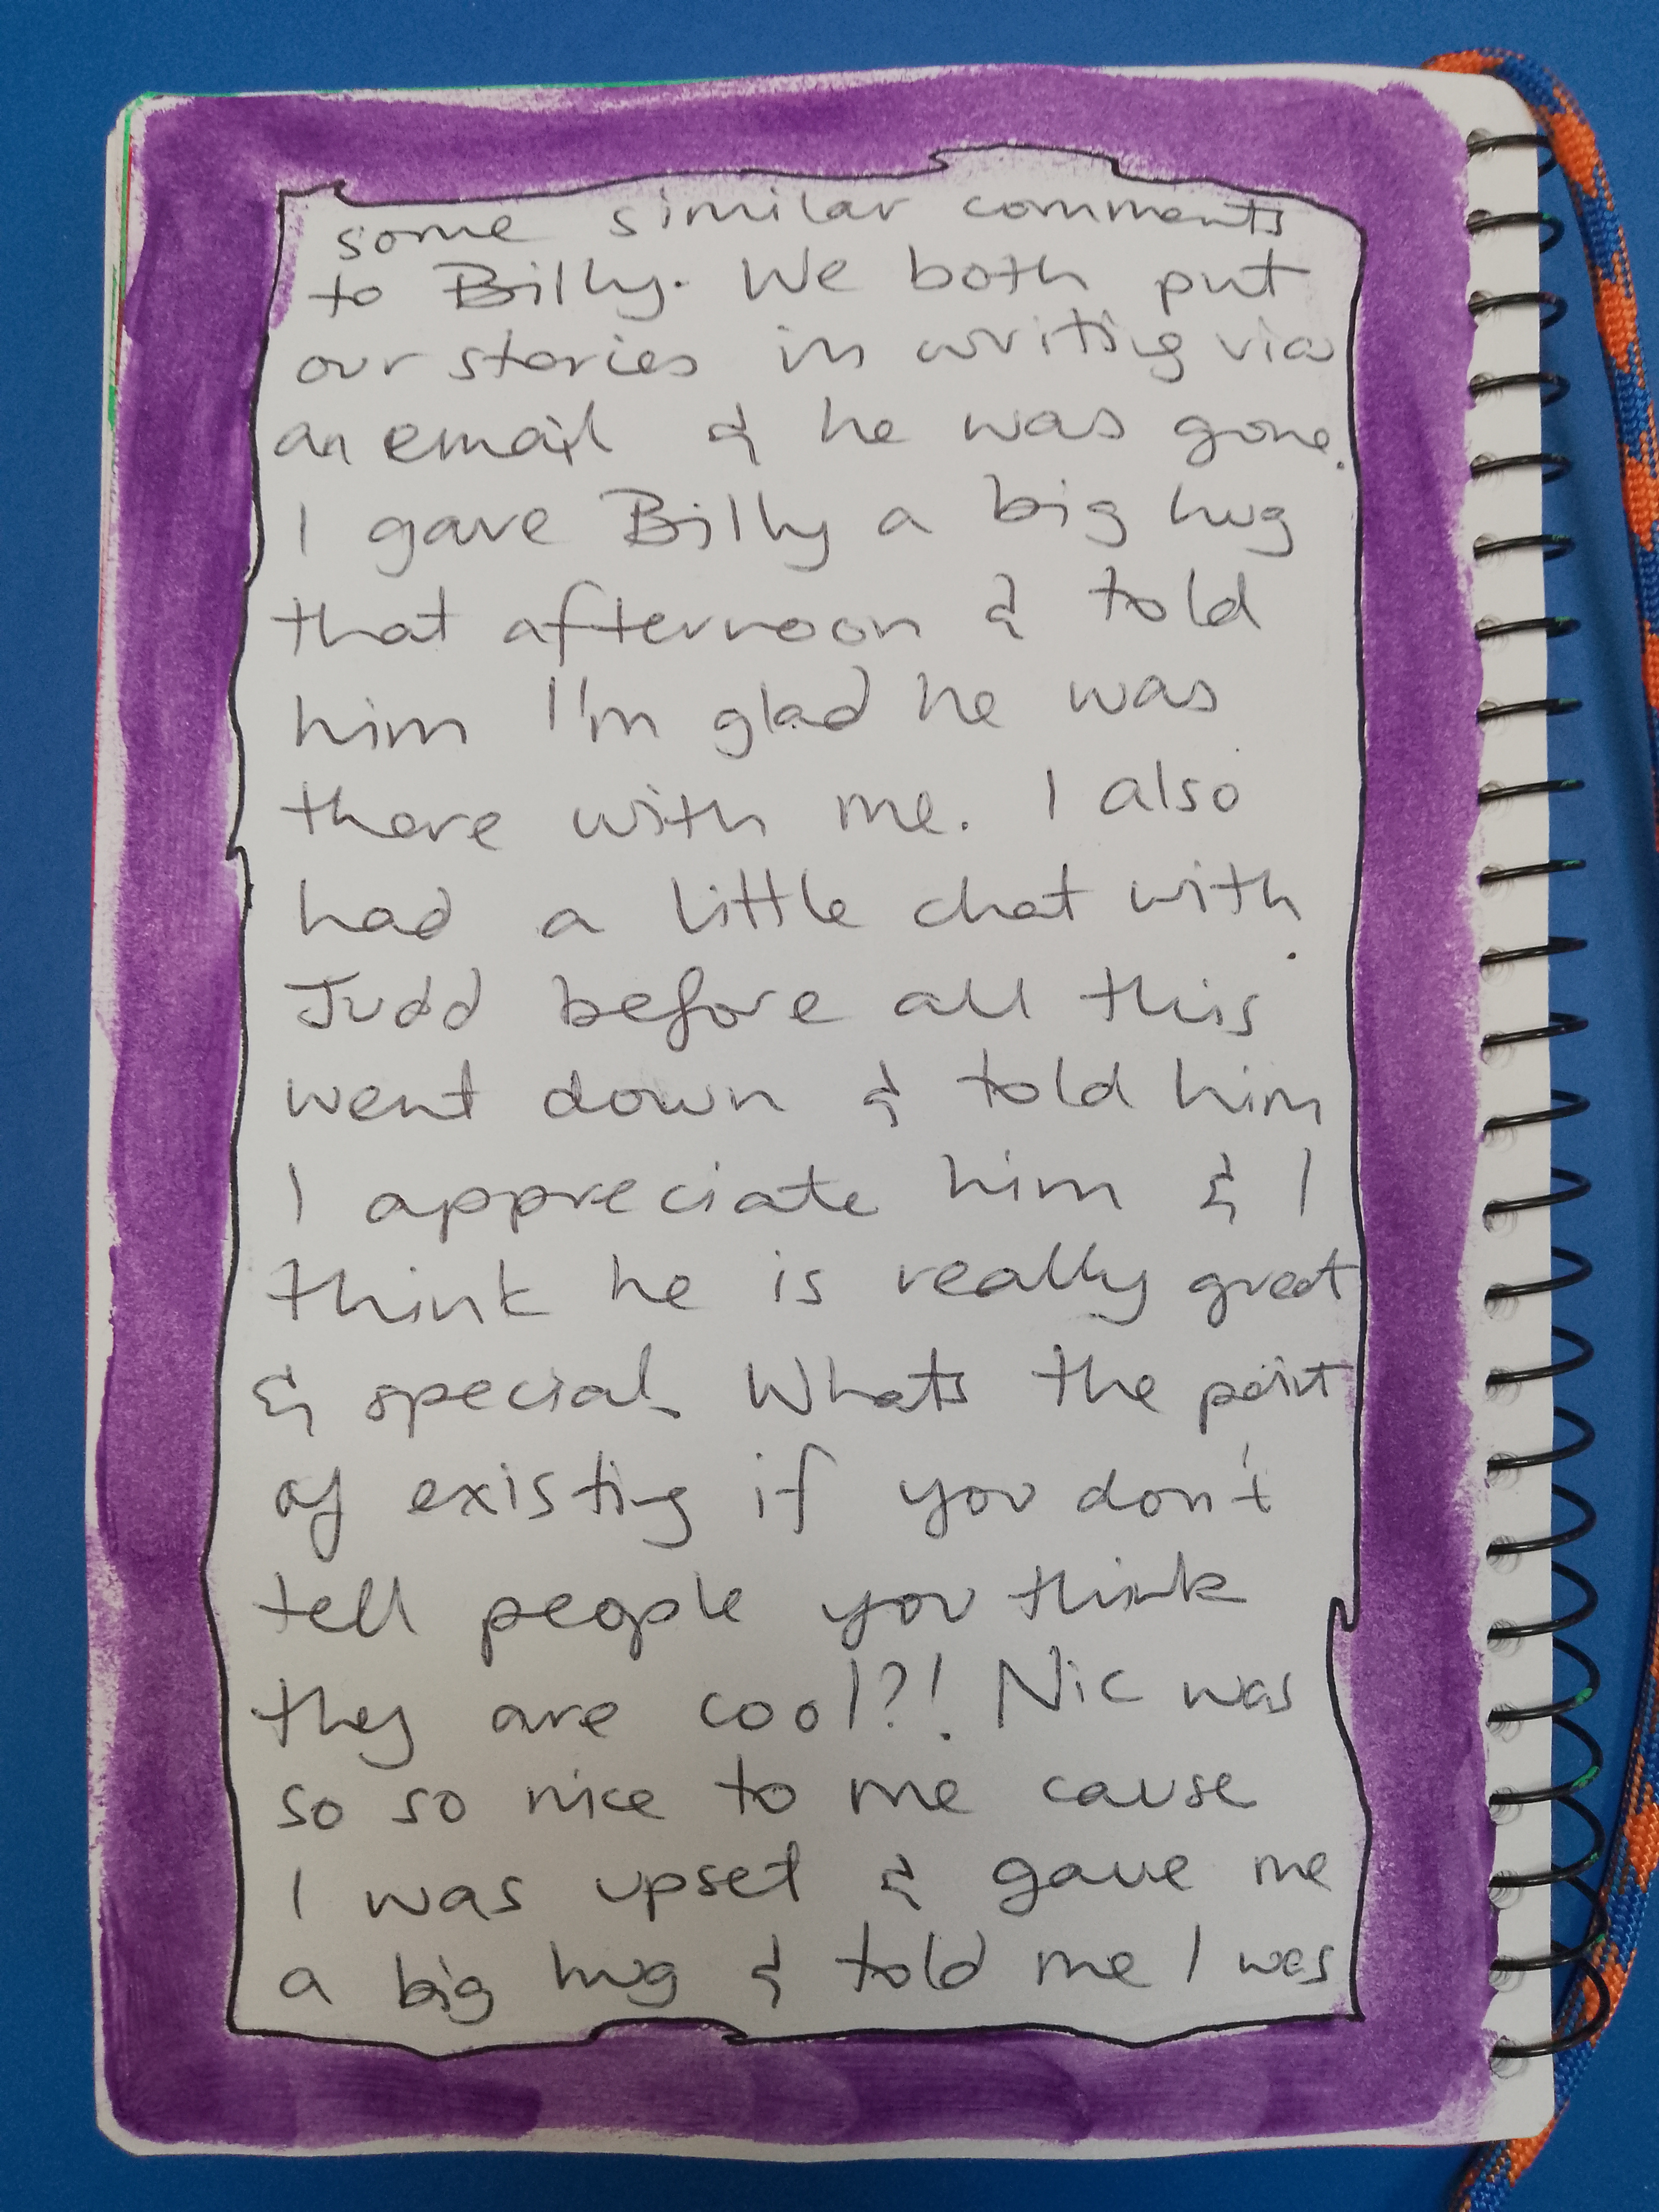 some similar comments
to Billy. We both put
our stories in writing via
an email & he was gone.
I gave Billy a big hug
that afternoon & told
him I'm glad he was
there with me. I also
had a little chat with
Judd before all this
went down & told him
I appreciate him & I
think he is really great
& special. Whats the point
of existing if you don't
tell people you think
they are cool?! Nic was
so so nice to me cause
I was upset & gave me
a big hug & told me I was